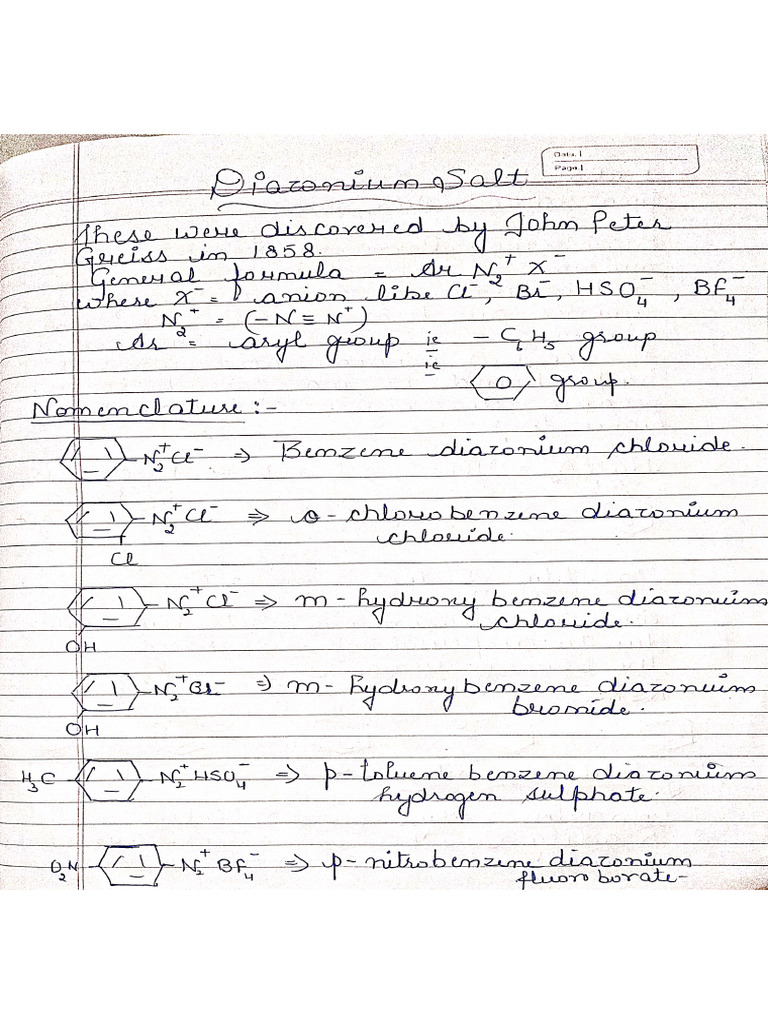 Date. |
Page. |
Diazonium Salt
These were discovered by John Peter
Greiss in 1858.
General formula = Ar N₂⁺ X⁻
where X⁻ = anion like Cl⁻, Br⁻, HSO₄⁻, BF₄⁻
N₂⁺ = (-N≡N⁺)
Ar = aryl group ie - C₆H₅ group
ie group.
Nomenclature :-
N₂⁺Cl⁻ ⇒ Benzene diazonium chloride.
N₂⁺Cl⁻ ⇒ o-chlorobenzene diazonium
chloride.
Cl
N₂⁺Cl⁻ ⇒ m-hydroxy benzene diazonium
chloride.
OH
N₂⁺Br⁻ ⇒ m-hydroxybenzene diazonium
bromide.
OH
H₃C N₂⁺HSO₄⁻ ⇒ p-toluene benzene diazonium
hydrogen sulphate.
O₂N N₂⁺BF₄⁻ ⇒ p-nitrobenzene diazonium
fluoro borate-